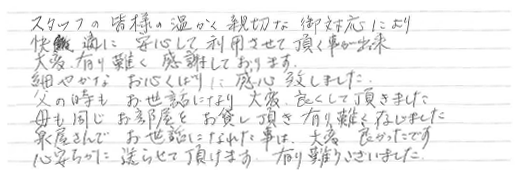 スタッフの皆様の温かく親切な御対応により
快適に安心して利用させて頂く事が出来
大変有り難く感謝しております。
細やかなお心くばりに感心致しました。
父の時もお世話になり大変良くして頂きました
母も同じお部屋をお貸し頂き有り難く存じました
泉屋さんでお世話になれた事は、大変良かったです
心安らかに送らせて頂けます。有り難うございました。